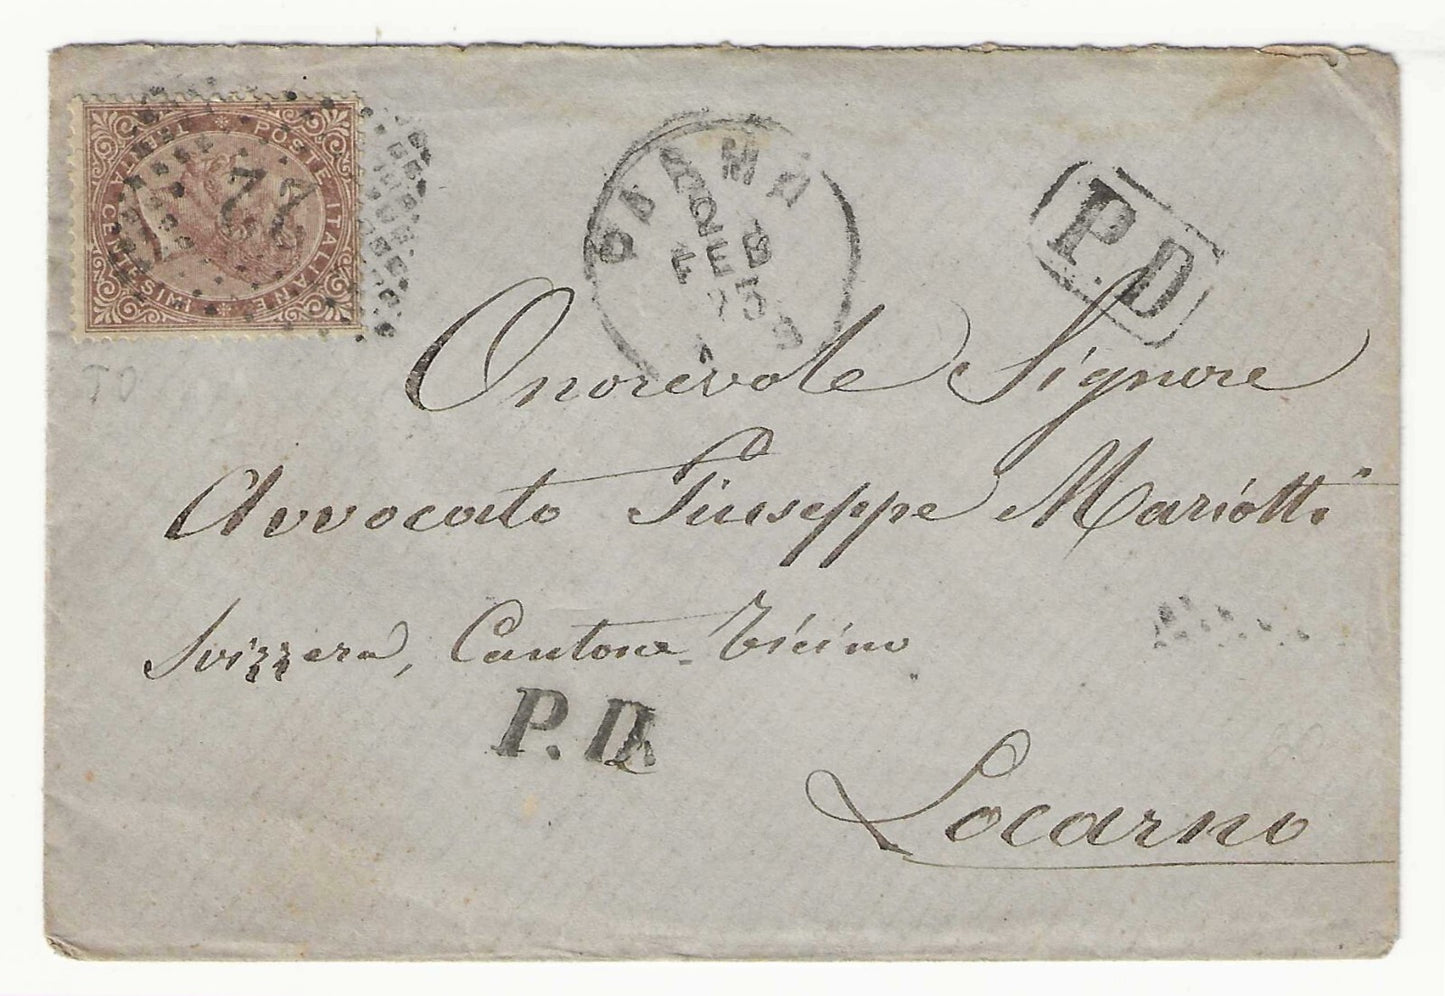 POSTE ITALIANE
CENT TRENTA
22
PARMA
FEB
73
P.D
Onorevole Signore
Avvocato Giuseppe Mariotti
Svizzera, Cantone Ticino
P.D.
Locarno
TO